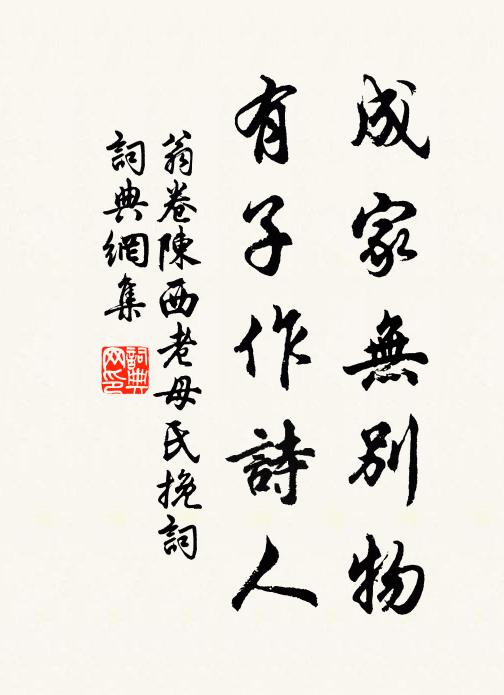 成家無別物
有子作詩人
翁卷陳西老母氏挽詞
詞典網集
詞典網印